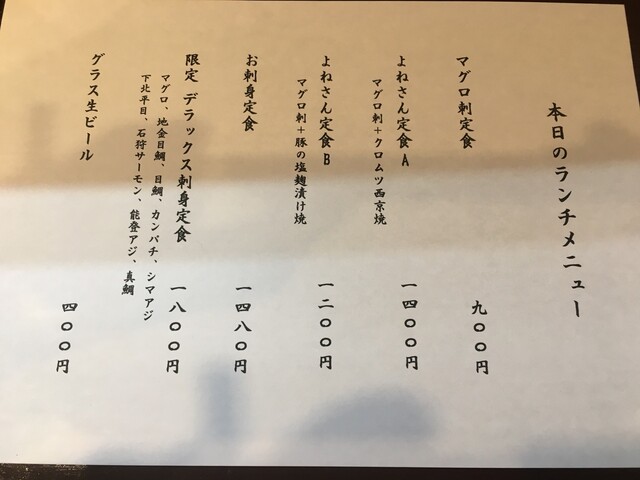 本日のランチメニュー
マグロ刺定食 九〇〇円
よねさん定食A 一四〇〇円
マグロ刺+クロムツ西京焼
よねさん定食B 一二〇〇円
マグロ刺+豚の塩麹漬け焼
お刺身定食 一四八〇円
限定 デラックス刺身定食 一八〇〇円
マグロ、地金目鯛、目鯛、カンパチ、シマアジ
下北平目、石狩サーモン、能登アジ、真鯛
グラス生ビール 四〇〇円